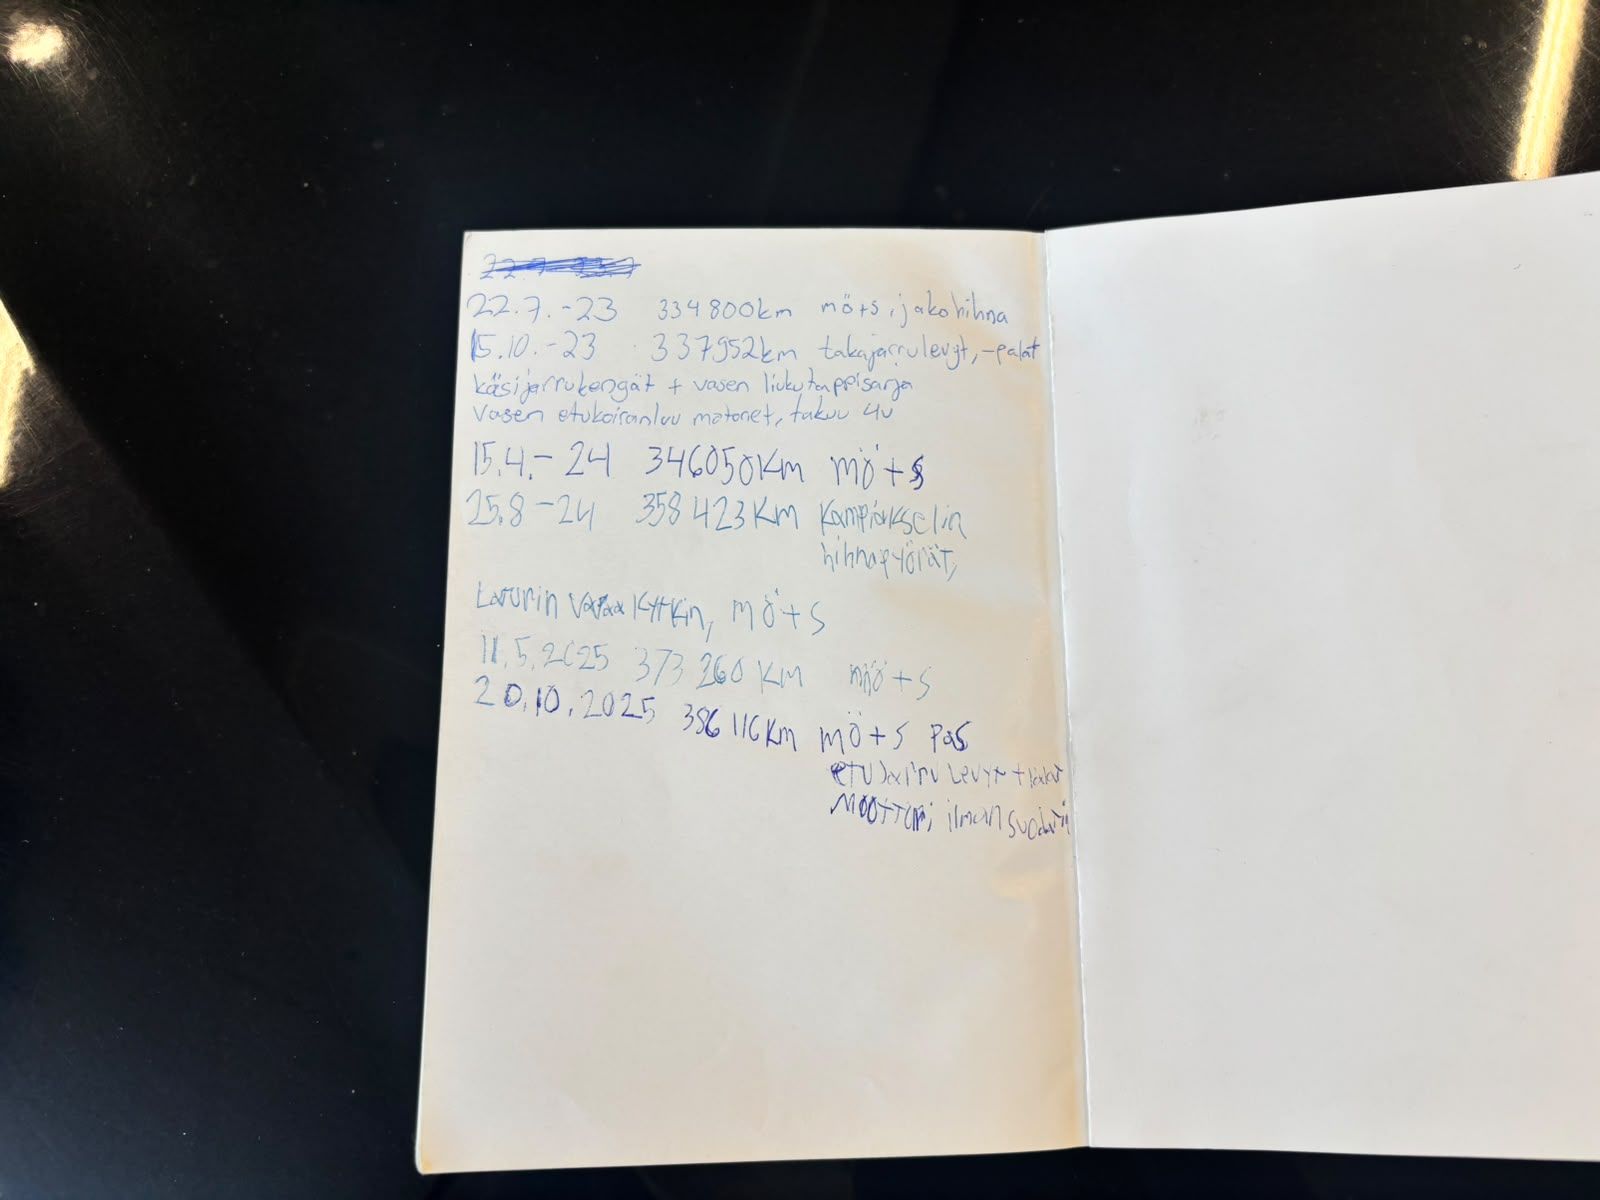 22.7.-23 334800km mö+s, jakohihna
15.10.-23 337952km takajarrulevyt, -palat
käsijarrukengät + vasen liukutappisarja
vasen etukoiranluu matonet, takuu 4v
15.4.-24 346050km mö+s
25.8-24 358423km Kampiakselin
hihnapyörät,
Laturin vapaakytkin, mö+s
11.5.2025 373260km mö+s
20.10.2025 386116km mö+s pas
etujarru levyt +
moottori ilman suodatin